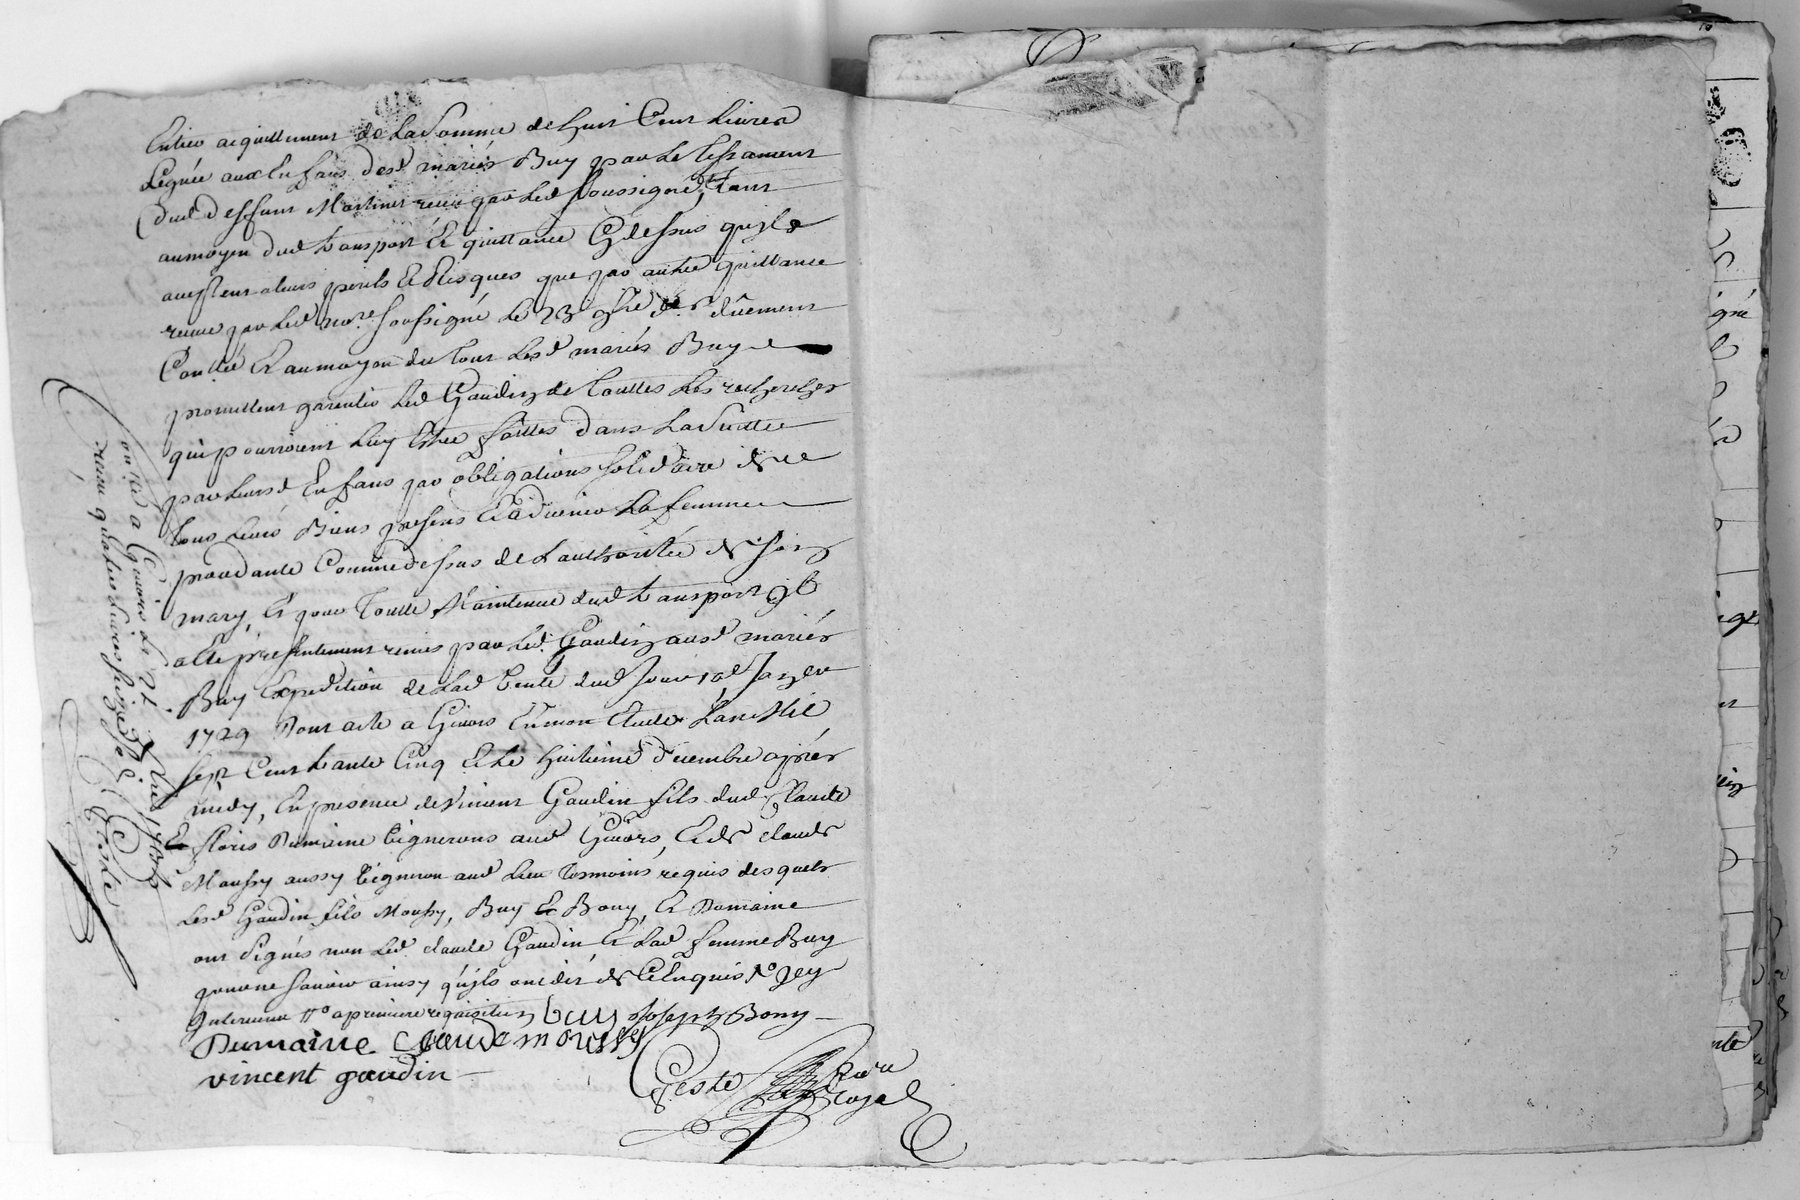 Entier acquittement de La Somme de huit Cent Livres
Leguée aux Enfans desd mariés Buy par Le testament
dud deffunt Martinet receu par Led soussigné, tant
au moyen dud transport Et quittance Cy dessus quils
acceptent a leurs perils Et Risques que par autre quittance
receue par Led nore soussigné Le 23 9bre dr duement
Conllée Et au moyen du tout Lesd mariés Buy
promettent garentir Led Gaudin de touttes Les recherches
qui pourroient Luy Estre faittes dans La Suitte
par Leursd Enfans par obligations solidaire de
tous Leurs Biens presens Et a Venir La femme
procedante Comme dessus de L'authoritée de son
mary, Et pour toutte Maintenue dud transport
a Eté presentement remis par Led. Gaudin ausd mariés
Buy Expedition de Lad Vente dud Jour 10e Janver
1729 Dont acte a Givors En mon Etude L'an Mil
sept Cent trante Cinq Et Le huitieme Decembre aprés
midy, En presence de Vincent Gaudin fils dud Claude
Et floris Dumaine Vignerons aud Givors, Et de claude
Moussy aussy Vigneron aud Lieu tesmoins requis desquels
Lesd Gaudin fils Moussy, Buy Et Bony, Et Dumaine
ont Signés non Led claude Gaudin Et Lad femme Buy
pour ne savoir ainsy quils ont dit de Ce Enquis Et
Intervenue a premiere requisition buy Joseph Bony
Dumaine claude moussy
vincent gaudin
Geste
royal
Contlé a Givors Le 21 Xbre 1735
Receu quatre Livres seize s
Geste